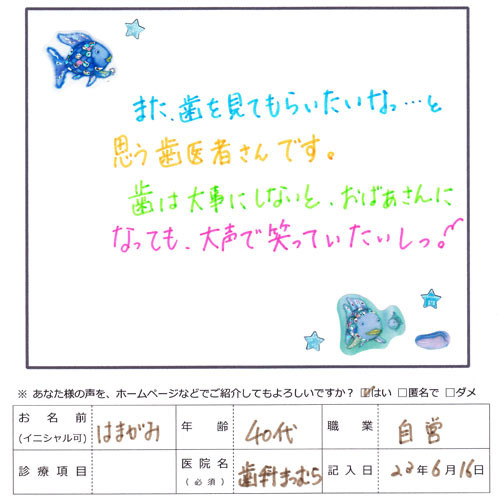 また、歯を見てもらいたいなっ…と
思う歯医者さんです。
歯は大事にしないと、おばあさんに
なっても、大声で笑っていたいしっ。
※ あなた様の声を、ホームページなどでご紹介してもよろしいですか？ ☑はい □匿名で □ダメ
お名前 (イニシャル可) はまがみ 年齢 40代 職業 自営
診療項目 医院名 (必須) 歯科まつむら 記入日 22年6月16日